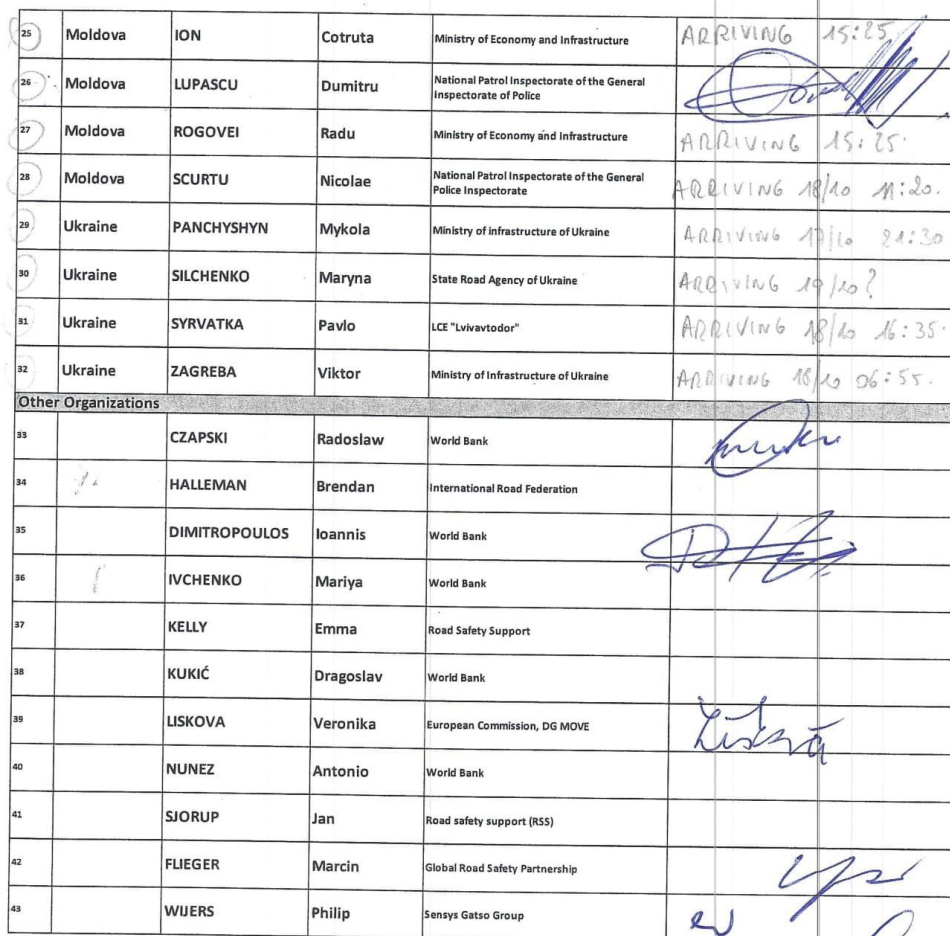 25 Moldova ION Cotruta Ministry of Economy and Infrastructure ARRIVING 15:25
26 Moldova LUPASCU Dumitru National Patrol Inspectorate of the General
Inspectorate of Police
27 Moldova ROGOVEI Radu Ministry of Economy and Infrastructure ARRIVING 15:25.
28 Moldova SCURTU Nicolae National Patrol Inspectorate of the General
Police Inspectorate ARRIVING 18/10 11:20.
29 Ukraine PANCHYSHYN Mykola Ministry of infrastructure of Ukraine ARRIVING 17/10 21:30
30 Ukraine SILCHENKO Maryna State Road Agency of Ukraine ARRIVING 19/10?
31 Ukraine SYRVATKA Pavlo LCE "Lvivavtodor" ARRIVING 18/10 16:35.
32 Ukraine ZAGREBA Viktor Ministry of Infrastructure of Ukraine ARRIVING 18/10 06:55.
Other Organizations
33 CZAPSKI Radoslaw World Bank
34 HALLEMAN Brendan International Road Federation
35 DIMITROPOULOS Ioannis World Bank
36 IVCHENKO Mariya World Bank
37 KELLY Emma Road Safety Support
38 KUKIĆ Dragoslav World Bank
39 LISKOVA Veronika European Commission, DG MOVE
40 NUNEZ Antonio World Bank
41 SJORUP Jan Road safety support (RSS)
42 FLIEGER Marcin Global Road Safety Partnership
43 WIJERS Philip Sensys Gatso Group